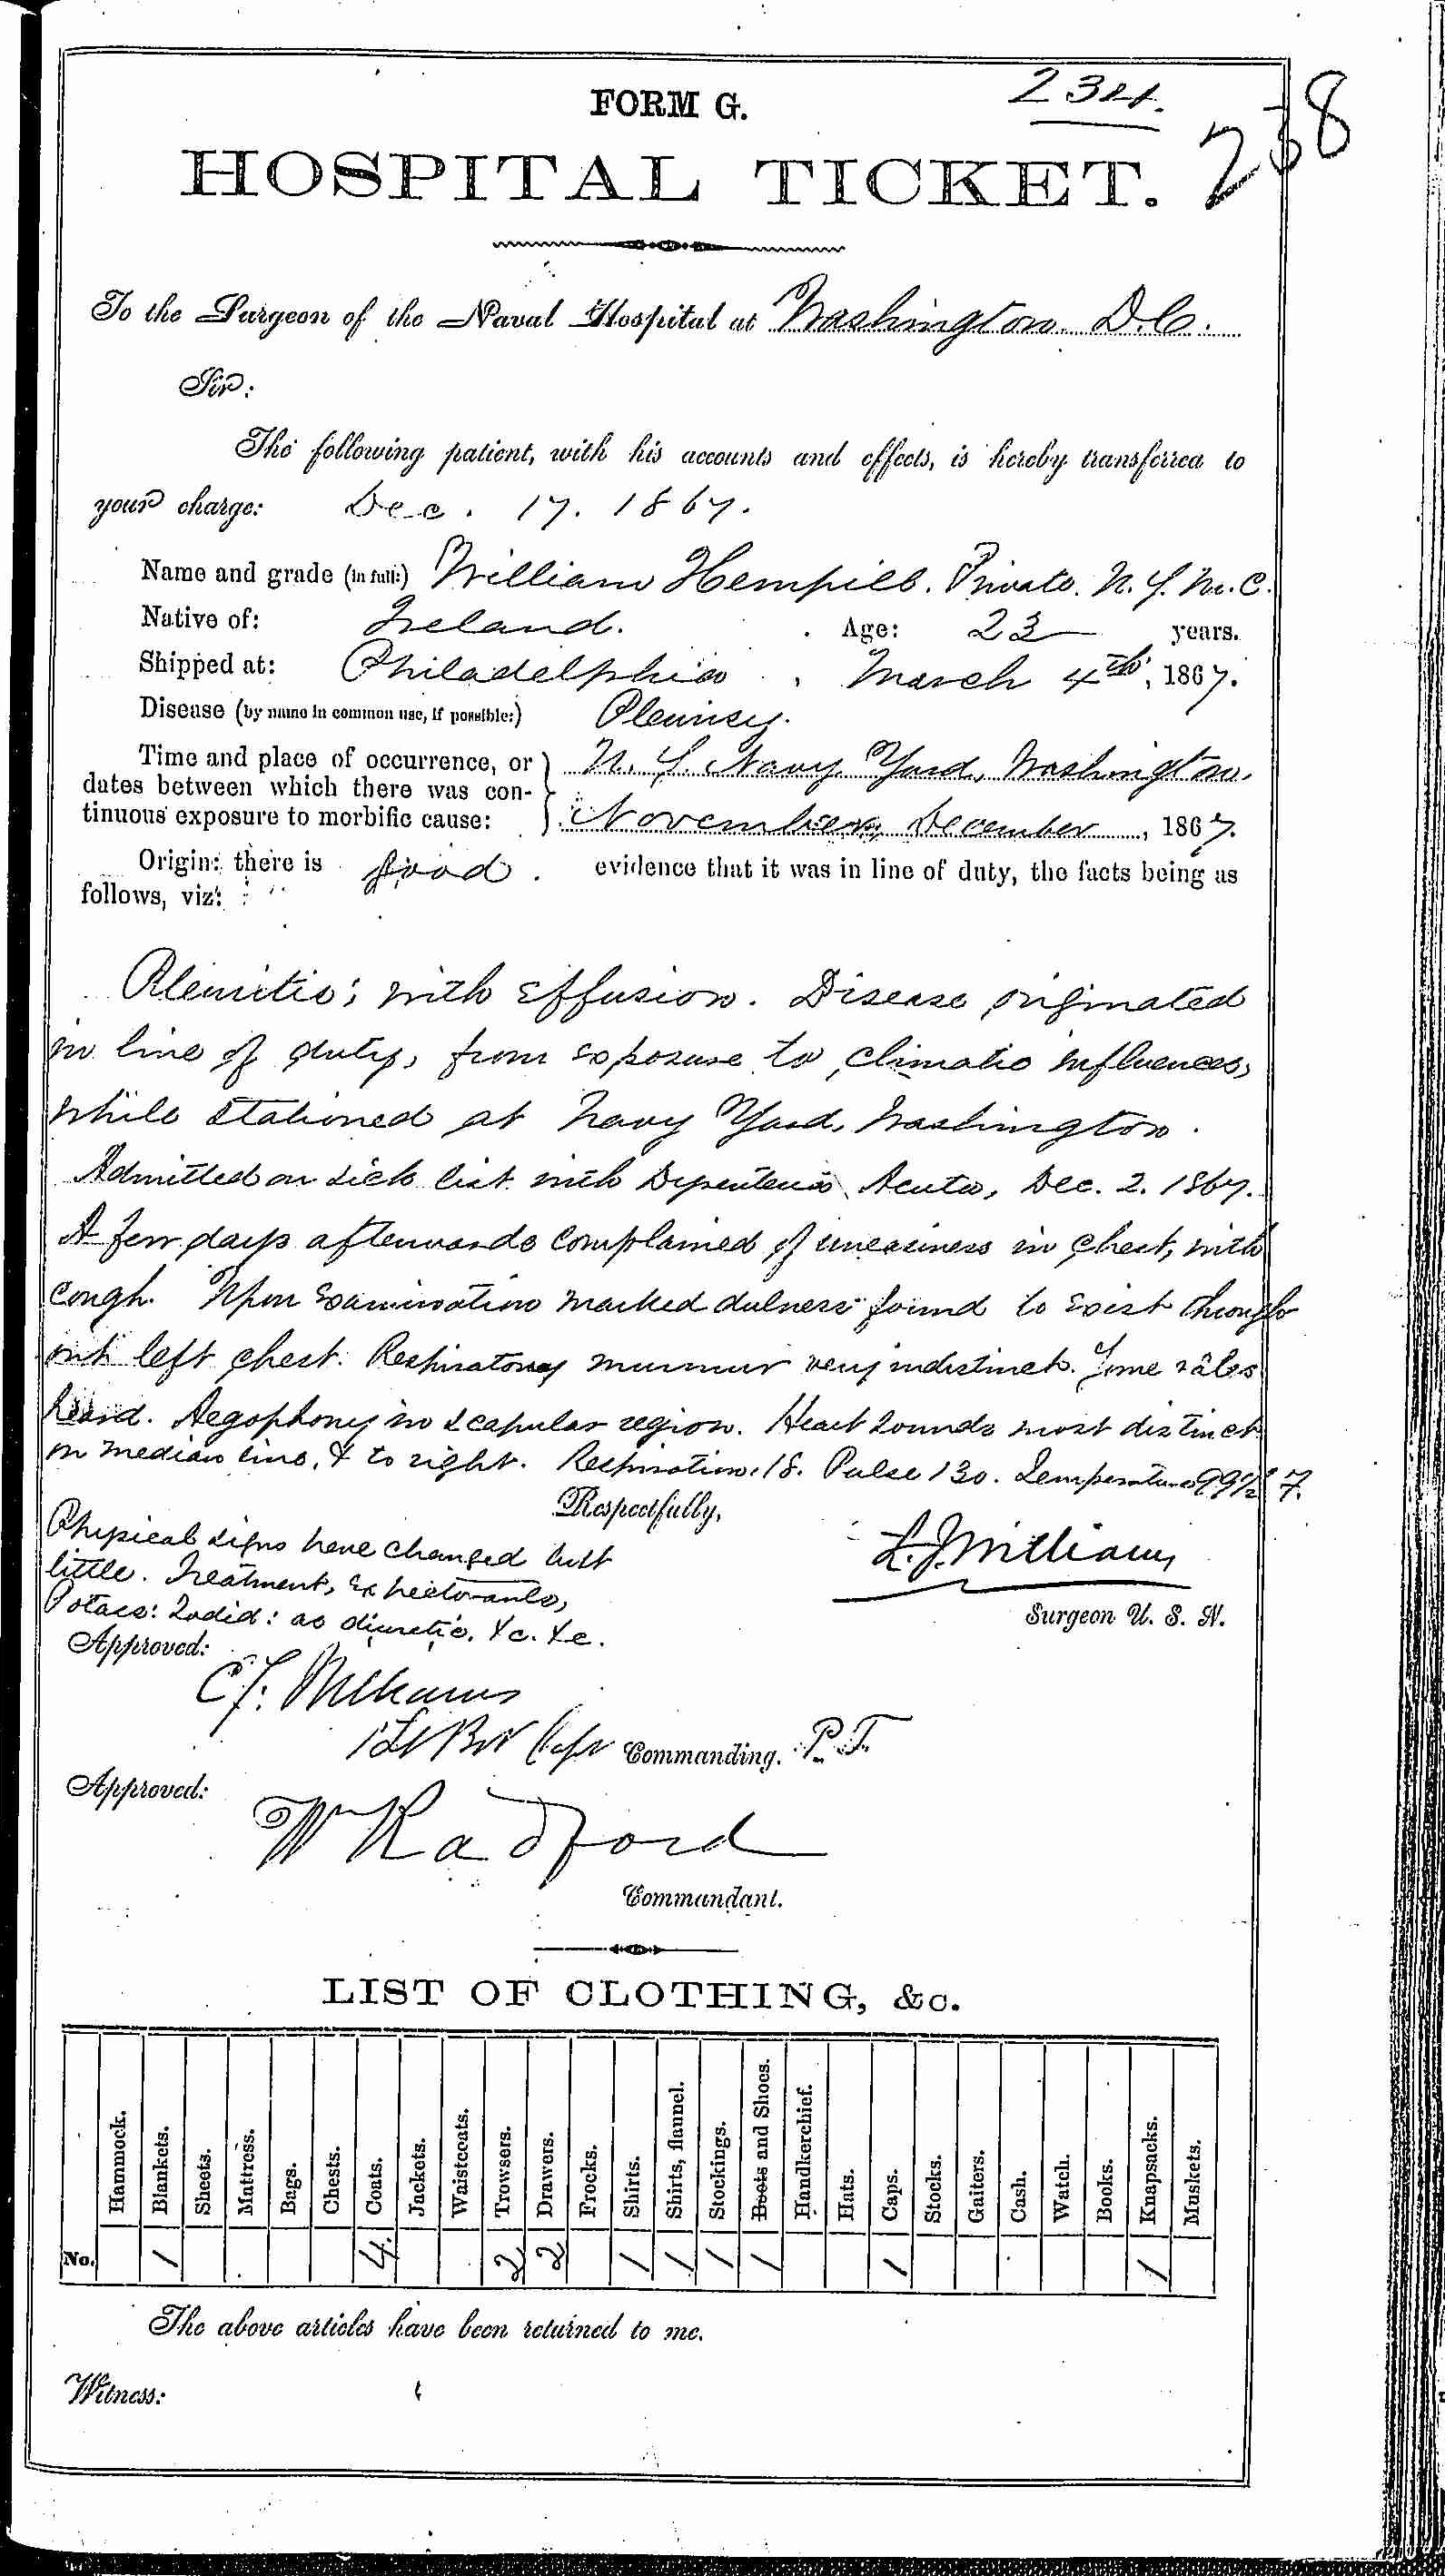 FORM G.
238
HOSPITAL TICKET.
To the Surgeon of the Naval Hospital at Washington. D.C.
Sir:
The following patient, with his accounts and effects, is hereby transferred to
your charge: Dec. 17. 1867.
Name and grade (in full:) William Hempill. Private. U. S. M. C.
Native of: Ireland. Age: 23 years.
Shipped at: Philadelphia, March 4th, 1867.
Disease (by name in common use, if possible:) Pleurisy.
Time and place of occurrence, or U. S. Navy Yard, Washington,
dates between which there was con-
tinuous exposure to morbific cause: November, December, 1867.
Origin: there is good. evidence that it was in line of duty, the facts being as
follows, viz:
Pleuritis; with effusion. Disease originated
in line of duty, from exposure to climatic influences,
while stationed at Navy Yard, Washington.
Admitted on sick list with Dysenteria Acuta, Dec. 2. 1867.
A few days afterwards complained of uneasiness in chest, with
cough. Upon examination marked dulness found to exist through
out left chest. Respiratory murmur very indistinct. Some râles
heard. Aegophony in scapular region. Heart sounds most distinct
on median line, & to right. Respiration, 18. Pulse 130. Temperature 99½° F.
Respectfully,
Physical signs have changed but
little. Treatment, expectorants,
Potass: Iodid: as diuretic. &c. &c.
L. J. Williams
Surgeon U. S. N.
Approved:
1 Lt Bvt Capt Commanding. P. T.
Approved:
W Radford
Commandant.
LIST OF CLOTHING, &c.
Hammock. Blankets. Sheets. Mattress. Bags. Chests. Coats. Jackets. Waistcoats. Trowsers. Drawers. Frocks. Shirts. Shirts, flannel. Stockings. Boots and Shoes. Handkerchief. Hats. Caps. Stocks. Gaiters. Cash. Watch. Books. Knapsacks. Muskets.
No. 1 4. 2 2 1 1 1 1 1 1
The above articles have been returned to me.
Witness: